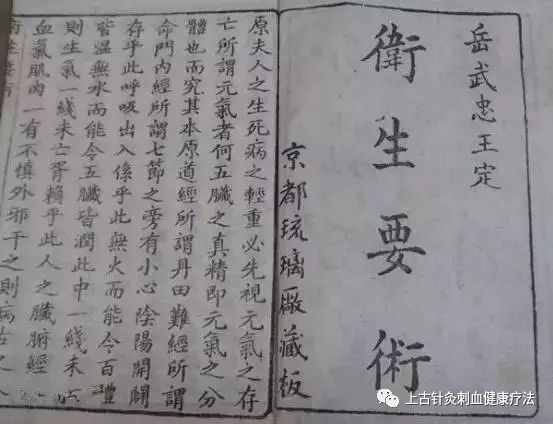 岳武忠王定
衛生要術
京都琉璃厰藏板
原夫人之生死病之輕重必先視元氣之存
亡所謂元氣者何五臟之真精即元氣之分
體也而究其本原道經所謂丹田難經所謂
命門内經所謂七節之旁有小心陰陽開闢
存乎此呼吸出入係乎此無火而能令百體
皆温無水而能令五臟皆潤此中一綫未
則生氣一綫未亡胥賴乎此人之臟腑經
血氣肌肉一有不慎外邪干之則病古之人
上古针灸刺血健康疗法